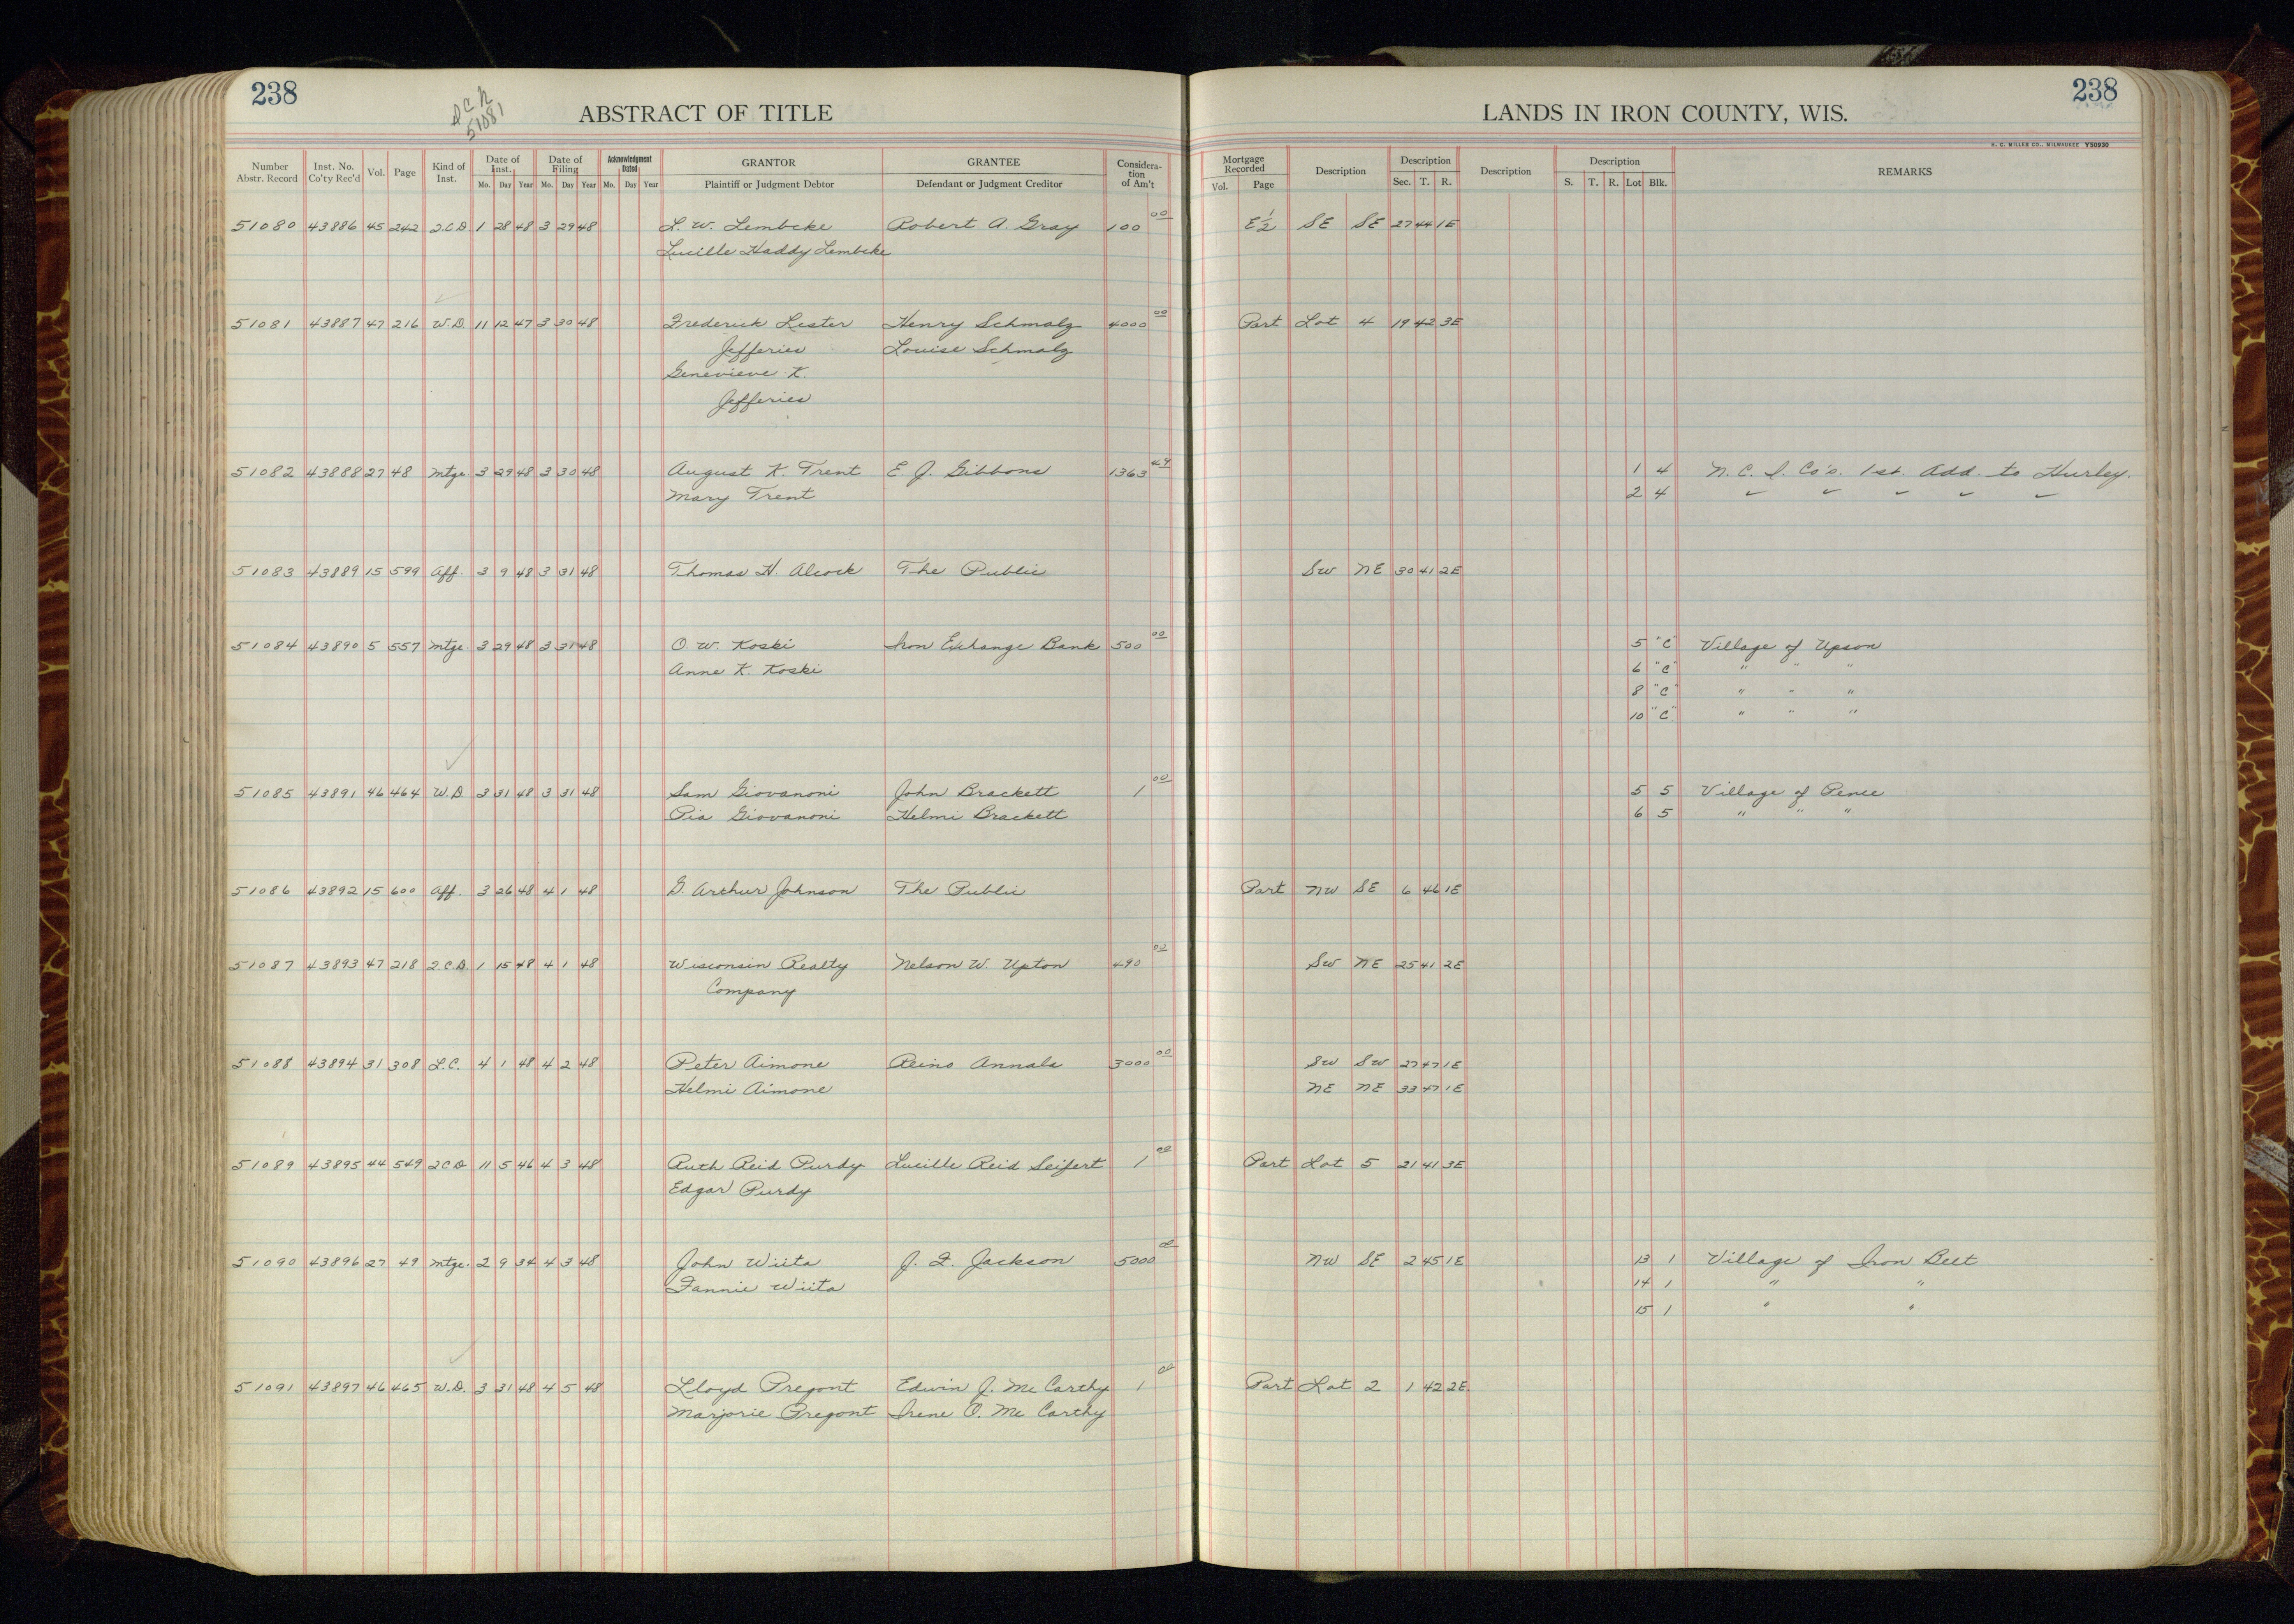 238
ABSTRACT OF TITLE
LANDS IN IRON COUNTY, WIS.
238
51081
H. C. MILLER CO., MILWAUKEE Y50930
Number Abstr. Record Inst. No. Co'ty Rec'd Vol. Page Kind of Inst. Date of Inst. Mo. Day Year Date of Filing Mo. Day Year Acknowledgment Dated Mo. Day Year GRANTOR Plaintiff or Judgment Debtor GRANTEE Defendant or Judgment Creditor Considera-tion of Am't Mortgage Recorded Vol. Page Description Description Sec. T. R. Description Description S. T. R. Lot Blk. REMARKS
51080 43886 45 242 2.C.D. 1 28 48 3 29 48 L. W. Lembcke Robert A. Gray 100 00 E 1/2 SE SE 27 44 1E
Lucille Haddy Lembcke
51081 43887 47 216 W.D. 11 12 47 3 30 48 Frederick Lester Henry Schmalz 4000 00 Part Lot 4 19 42 3E
Jefferies Louise Schmalz
Genevieve K.
Jefferies
51082 43888 27 48 Mtge. 3 29 48 3 30 48 August K. Trent E. J. Gibbons 1363 49 1 4 N. C. I. Co's. 1st. Add. to Hurley.
Mary Trent 2 4 " " " " "
51083 43889 15 599 Aff. 3 9 48 3 31 48 Thomas H. Alcock The Public SW NE 30 41 2E
51084 43890 5 557 Mtge 3 29 48 3 31 48 O. W. Koski Iron Exhange Bank 500 00 5 "C" Village of Upson
Anne K. Koski 6 "C" " " "
8 "C" " " "
10 "C" " " "
51085 43891 46 464 W.D. 3 31 48 3 31 48 Sam Giovanoni John Brackett 1 00 5 5 Village of Pence
Pia Giovanoni Helmi Brackett 6 5 " " "
51086 43892 15 600 Aff. 3 26 48 4 1 48 G. Arthur Johnson The Public Part NW SE 6 46 1E
51087 43893 47 218 2.C.D. 1 15 48 4 1 48 Wisconsin Realty Nelson W. Upton 490 00 SW NE 25 41 2E
Company
51088 43894 31 308 L.C. 4 1 48 4 2 48 Peter Aimone Reino Annala 3000 00 SW SW 27 47 1E
Helmi Aimone NE NE 33 47 1E
51089 43895 44 549 2CD 11 5 46 4 3 48 Ruth Reid Purdy Lucille Reid Seifert 1 00 Part Lot 5 21 41 3E
Edgar Purdy
51090 43896 27 49 Mtge. 2 9 34 4 3 48 John Wiita J. F. Jackson 5000 00 NW SE 2 45 1E 13 1 Village of Iron Belt
Fannie Wiita 14 1 " "
15 1 " "
51091 43897 46 465 W.D. 3 31 48 4 5 48 Lloyd Pregont Edwin J. McCarthy 1 00 Part Lot 2 1 42 2E.
Marjorie Pregont Irene O. McCarthy